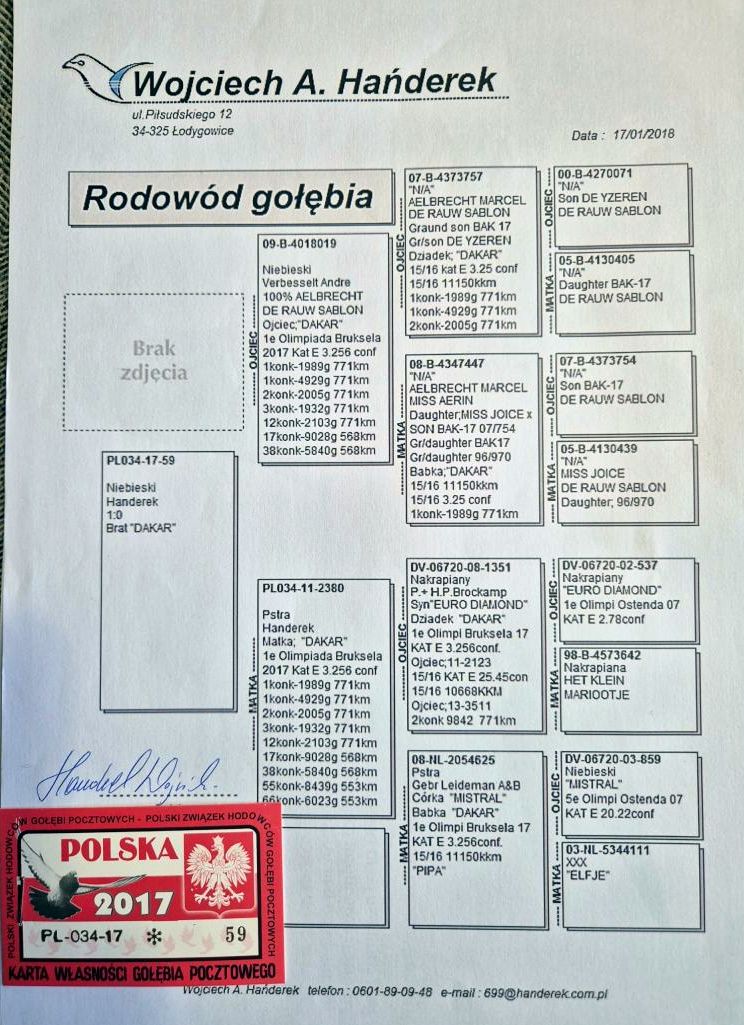 Wojciech A. Hańderek
ul.Piłsudskiego 12
34-325 Łodygowice
Data : 17/01/2018
Rodowód gołębia
Brak
zdjęcia
PL034-17-59
Niebieski
Handerek
1:0
Brat "DAKAR"
OJCIEC
09-B-4018019
Niebieski
Verbesselt Andre
100% AELBRECHT
DE RAUW SABLON
Ojciec;"DAKAR"
1e Olimpiada Bruksela
2017 Kat E 3.256 conf
1konk-1989g 771km
1konk-4929g 771km
2konk-2005g 771km
3konk-1932g 771km
12konk-2103g 771km
17konk-9028g 568km
38konk-5840g 568km
MATKA
PL034-11-2380
Pstra
Handerek
Matka; "DAKAR"
1e Olimpiada Bruksela
2017 Kat E 3.256 conf
1konk-1989g 771km
1konk-4929g 771km
2konk-2005g 771km
3konk-1932g 771km
12konk-2103g 771km
17konk-9028g 568km
38konk-5840g 568km
55konk-8439g 553km
66konk-6023g 553km
OJCIEC
07-B-4373757
"N/A"
AELBRECHT MARCEL
DE RAUW SABLON
Graund son BAK 17
Gr/son DE YZEREN
Dziadek; "DAKAR"
15/16 kat E 3.25 conf
15/16 11150kkm
1konk-1989g 771km
1konk-4929g 771km
2konk-2005g 771km
MATKA
08-B-4347447
"N/A"
AELBRECHT MARCEL
MISS AERIN
Daughter;MISS JOICE x
SON BAK-17 07/754
Gr/daughter BAK17
Gr/daughter 96/970
Babka;"DAKAR"
15/16 11150kkm
15/16 3.25 conf
1konk-1989g 771km
OJCIEC
DV-06720-08-1351
Nakrapiany
P.+ H.P.Brockamp
Syn"EURO DIAMOND"
Dziadek "DAKAR"
1e Olimpi Bruksela 17
KAT E 3.256conf.
Ojciec;11-2123
15/16 KAT E 25.45con
15/16 10668KKM
Ojciec;13-3511
2konk 9842 771km
MATKA
08-NL-2054625
Pstra
Gebr Leideman A&B
Córka "MISTRAL"
Babka "DAKAR"
1e Olimpi Bruksela 17
KAT E 3.256conf.
15/16 11150kkm
"PIPA"
OJCIEC
00-B-4270071
"N/A"
Son DE YZEREN
DE RAUW SABLON
MATKA
05-B-4130405
"N/A"
Daughter BAK-17
DE RAUW SABLON
OJCIEC
07-B-4373754
"N/A"
Son BAK-17
DE RAUW SABLON
MATKA
05-B-4130439
"N/A"
MISS JOICE
DE RAUW SABLON
Daughter; 96/970
OJCIEC
DV-06720-02-537
Nakrapiany
"EURO DIAMOND"
1e Olimpi Ostenda 07
KAT E 2.78conf
MATKA
98-B-4573642
Nakrapiana
HET KLEIN
MARIOOTJE
OJCIEC
DV-06720-03-859
Niebieski
"MISTRAL"
5e Olimpi Ostenda 07
KAT E 20.22conf
MATKA
03-NL-5344111
XXX
"ELFJE"
POLSKI ZWIĄZEK HODOWCÓW GOŁĘBI POCZTOWYCH - POLSKI ZWIĄZEK HODOWCÓW GOŁĘBI POCZTOWYCH
POLSKA
2017
PL-034-17 * 59
KARTA WŁASNOŚCI GOŁĘBIA POCZTOWEGO
Wojciech A. Hańderek telefon : 0601-89-09-48 e-mail : 699@handerek.com.pl